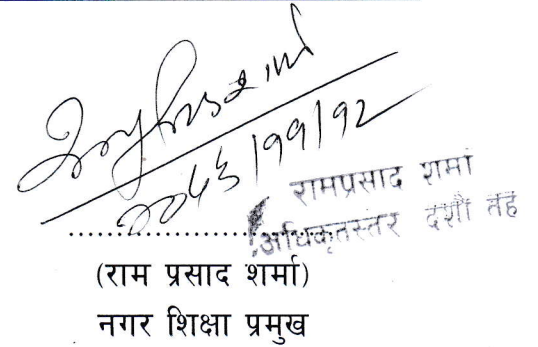 २०८१/११/१२
रामप्रसाद शर्मा
अधिकृतस्तर दशौं तह
....................
(राम प्रसाद शर्मा)
नगर शिक्षा प्रमुख